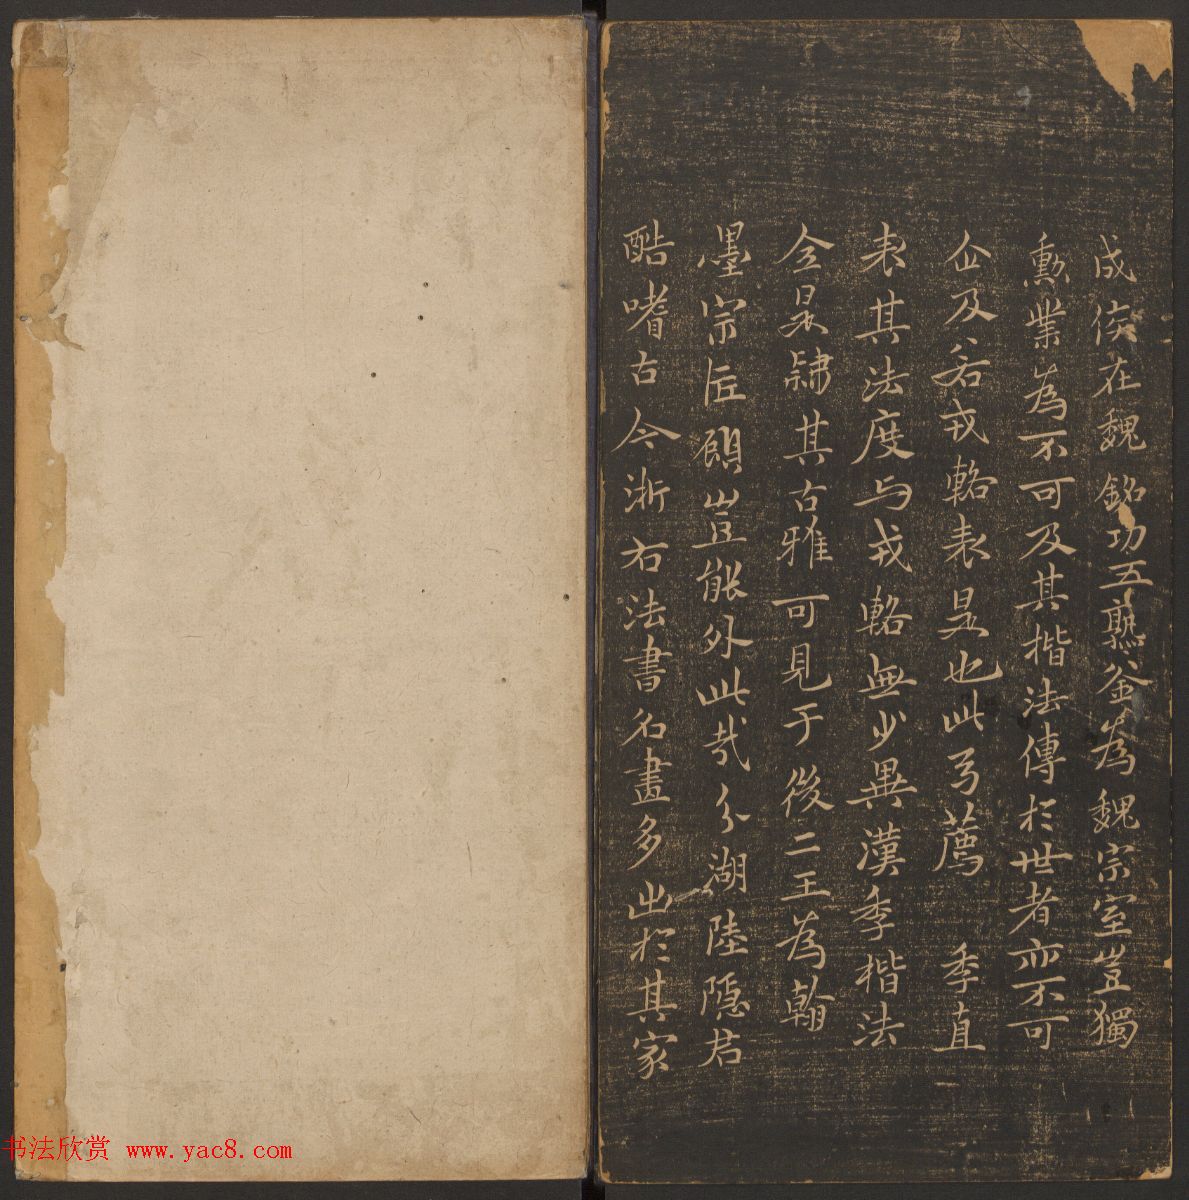 成侯在魏銘功五熟釜為魏宗室豈獨
勲業為不可及其楷法傳於世者亦不可
企及若戎輅表是也此乃薦季直
表其法度与戎輅無少異漢季楷法
今是隷其古雅可見于後二王為翰
墨宗匠顧豈能外此哉分湖陸隱君
酷嗜古今淅右法書名畫多出於其家
书法欣赏 www.yac8.com